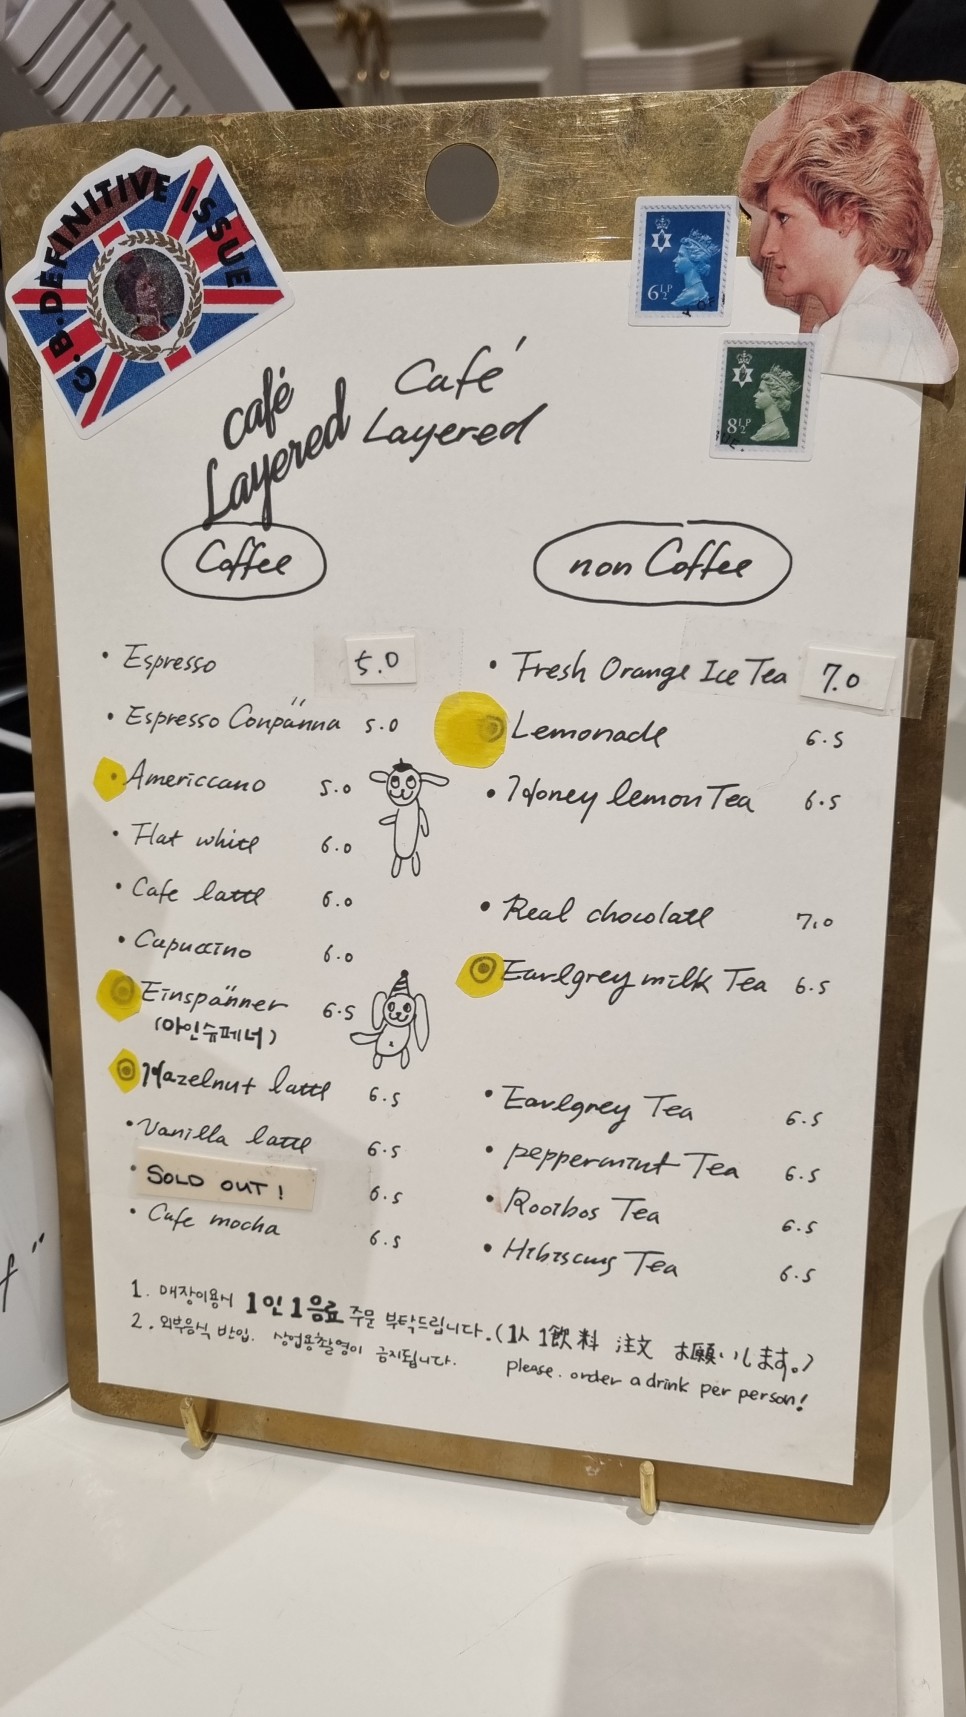 G.B. DEFINITIVE ISSUE
6½P
8½P
café Layered
Café Layered
Coffee
• Espresso 5.0
• Espresso Conpänna 5.0
• Americcano 5.0
• Flat white 6.0
• Cafe latte 6.0
• Capuccino 6.0
• Einspänner 6.5
(아인슈페너)
• Hazelnut latte 6.5
• Vanilla latte 6.5
• SOLD OUT! 6.5
• Cafe mocha 6.5
non Coffee
• Fresh Orange Ice Tea 7.0
• Lemonade 6.5
• Honey lemon Tea 6.5
• Real chocolate 7.0
• Earlgrey milk Tea 6.5
• Earlgrey Tea 6.5
• peppermint Tea 6.5
• Rooibos Tea 6.5
• Hibiscus Tea 6.5
1.매장이용시 1인 1음료 주문 부탁드립니다. (1人 1飲料 注文 お願いします。)
2. 외부음식 반입. 상업용촬영이 금지됩니다.
please. order a drink per person!